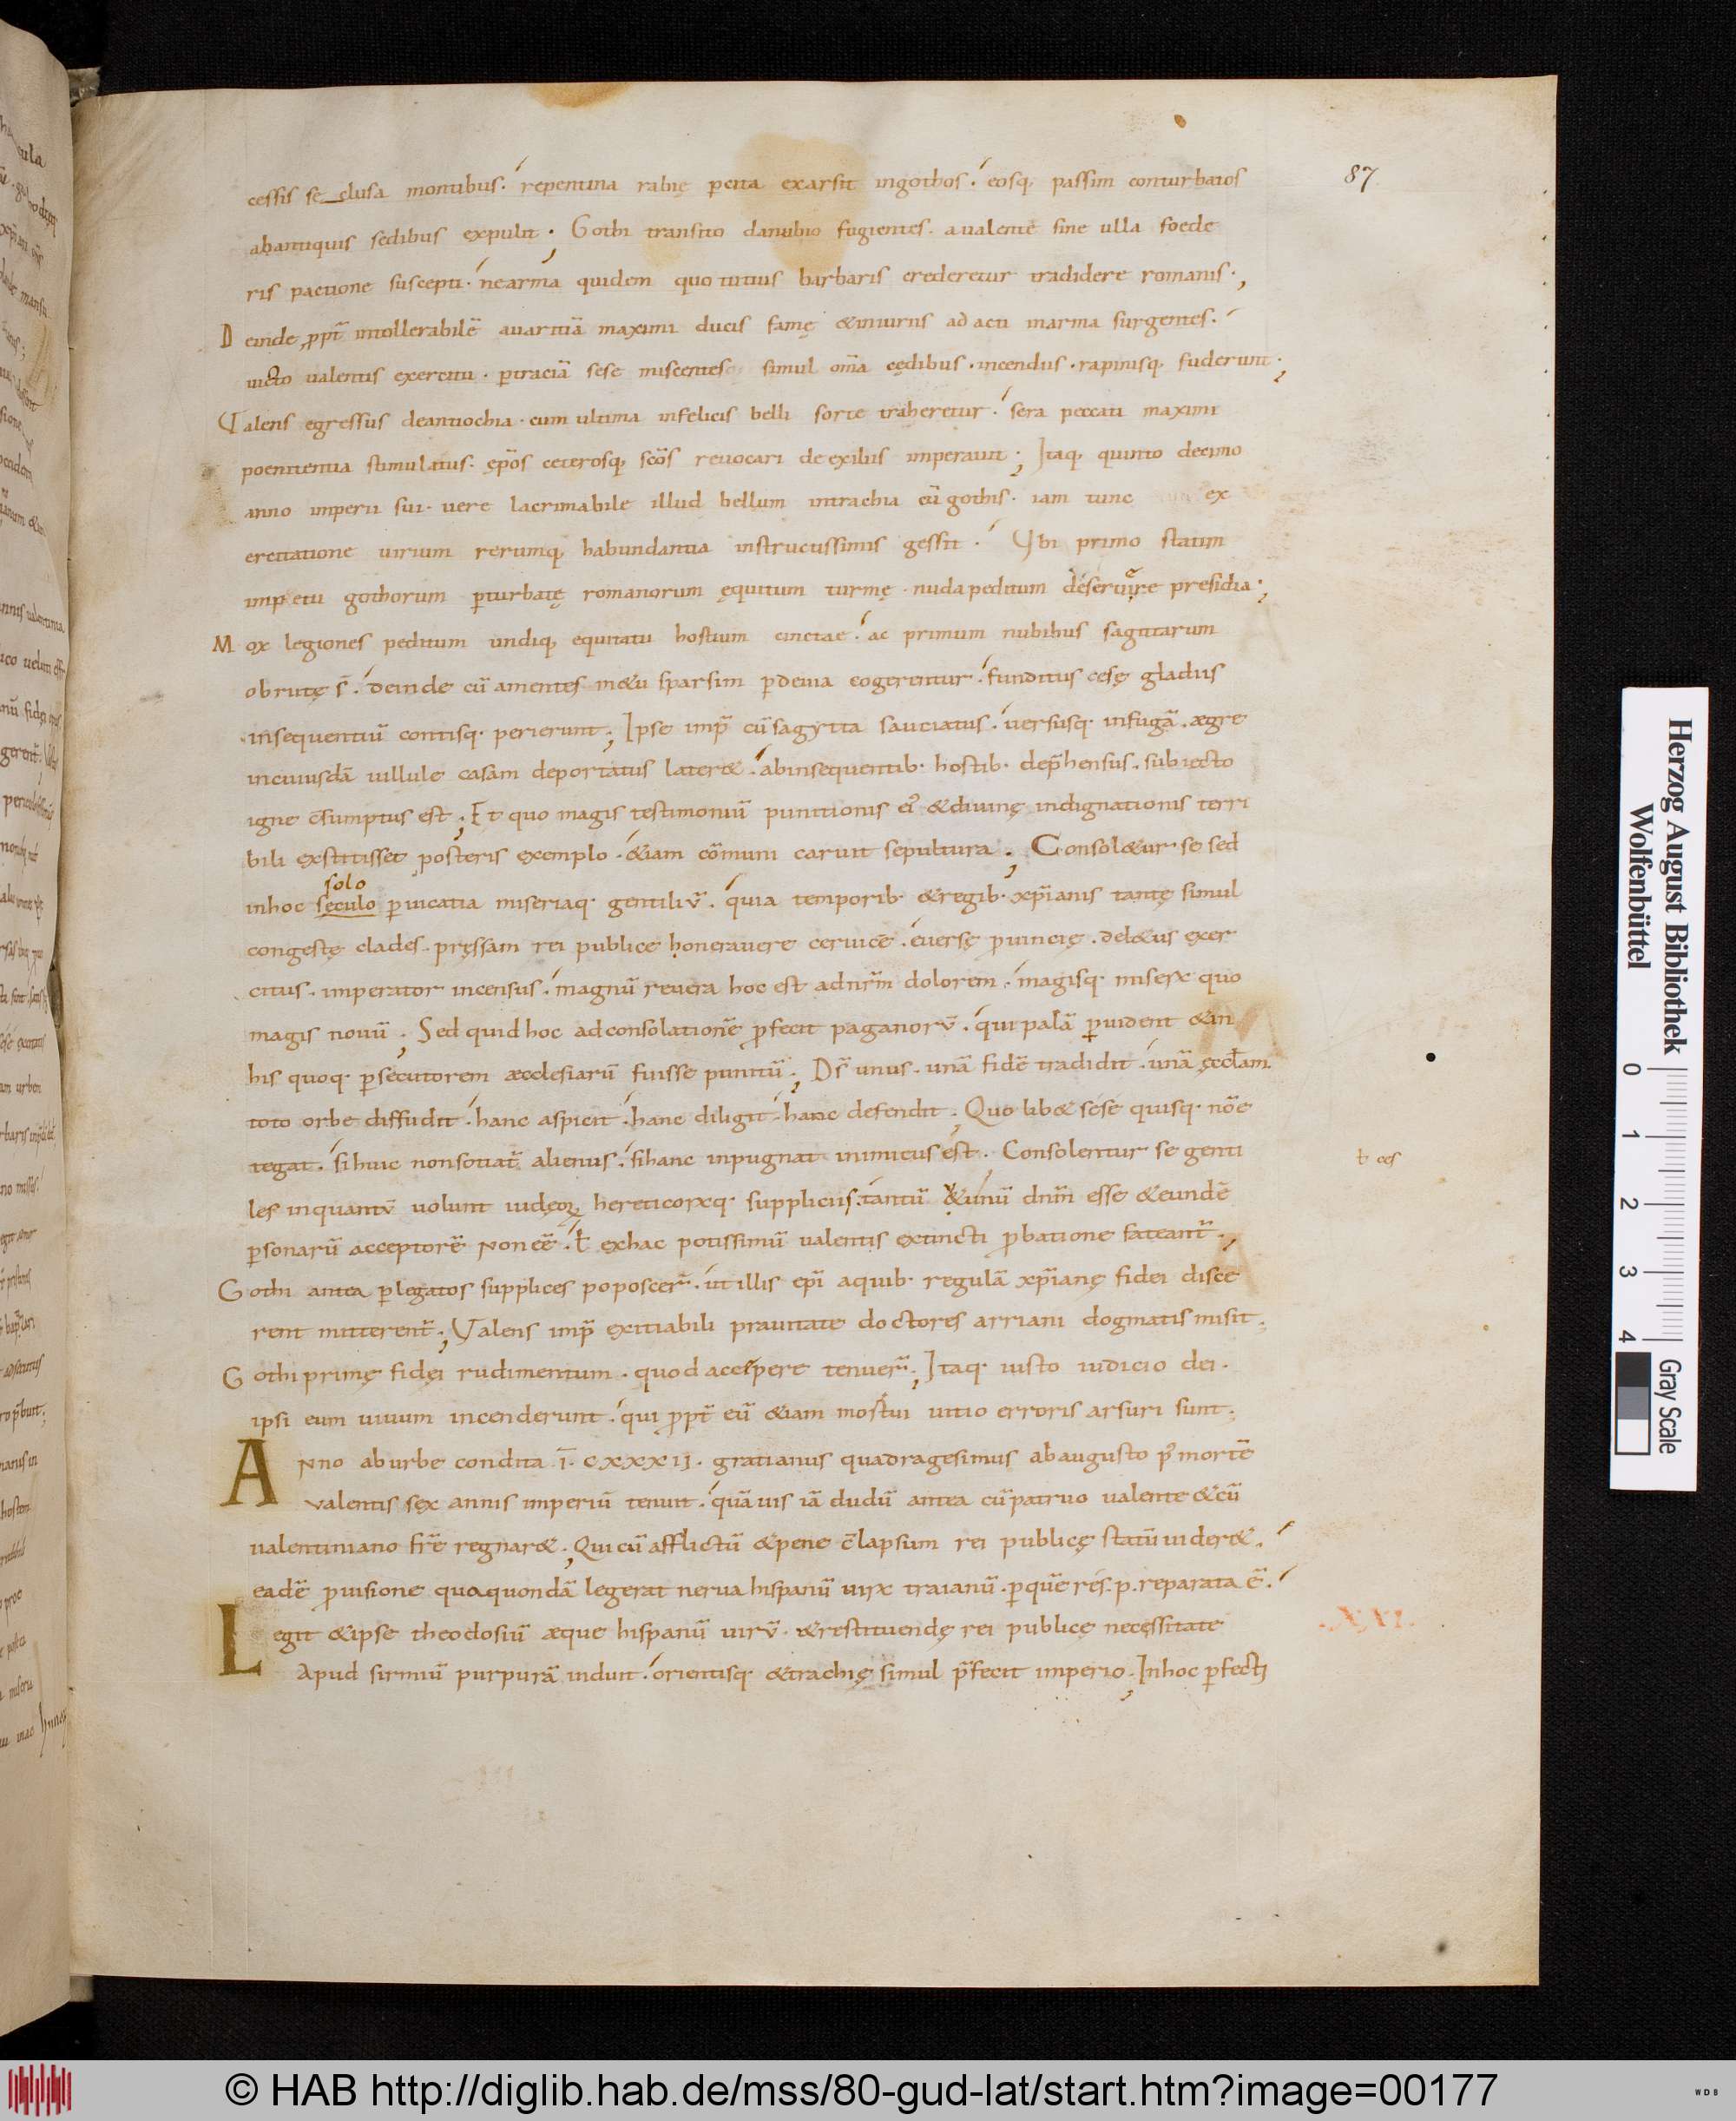 87
cessis se clusa montibus· repentina rabię percita exarsit ingothos· eosq; passim conturbatos
abantiquis sedibus expulit; Gothi transito danubio fugientes· aualente sine ulla foede
ris pactione suscepti· nearma quidem quo tutius barbaris crederetur tradidere romanis;
Deinde ꝓpt̄ intollerabilē auaritiā maximi ducis famę &iniuriis adacti inarma surgentes·
uicto ualentis exercitu· ꝑtraciā sese miscentes simul om̄a cędibus· incendiis· rapinisq; fuderunt;
Valens egressus deantiochia· cum ultima infelicis belli sorte traheretur· sera peccati maximi
poenitentia stimulatus· ep̄os ceterosq; sc̄os reuocari deexiliis imperauit; Itaq; quinto decimo
anno imperii sui· uere lacrimabile illud bellum intrachia cū gothis· iam tunc ex
ercitatione uirium rerumq; habundantia instructissimis gessit· Vbi primo statim
impetu gothorum ꝑturbatę romanorum ęquitum turmę· nuda peditum deseruere presidia;
Mox legiones peditum undiq; equitatu hostium cinctae· ac primum nubibus sagittarum
obrutę s̄· deinde cū amentes m&u sparsim ꝑdeuia cogerentur· funditus cesę gladiis
insequentiū contisq· perierunt; Ipse imꝑ cū sagytta sauciatus· uersusq· infugā· ægre
incuiusdā uillule casam deportatus later&· abinsequentib· hostib· dep̄hensus· subiecto
igne c̄sumptus est; Et quo magis testimoniū punitionis ei' &diuinę indignationis terri
bili exstitisset posteris exemplo· &iam cōmuni caruit sepultura; Consol&ur se sed
solo
inhoc seculo ꝑuicatia miseriaq· gentiliū· quia temporib· &regib· xp̄ianis tantę simul
congestę clades· pręssam rei publice honerauere ceruicē· euersę ꝓuincię· del&us exer
citus· imperator incensus· magnū reuera hoc est adnr̄m dolorem· magisq· miserx quo
magis nouū; Sed quid hoc adconsolationē ꝓfecit paganorū· qui palā ꝑuident &in
his quoq· ꝑsecutorem æcclesiarū fuisse punitū; Ds̄ unus· unā fidē tradidit· unā ęccłam
toto orbe diffudit· hanc aspicit· hanc diligit· hanc defendit; Quo lib& sese quisq· nōe
tegat· sihuic nonsotiat̄ alienus· sihanc inpugnat inimicus est· Consolentur se genti
ł ces
les inquantū uolunt iudęorꝙ hereticorxq· suppliciis· tantū &unū dn̄m esse &eundē
ꝑsonarū acceptorē Non eē· ł exhac potissimū ualentis extincti ꝓbatione fateant̄;
Gothi antea ꝑlegatos supplices poposcer̄· ut illis epi aquib· regulā xp̄ianę fidei disce
rent mitterent̄; Valens imꝑ exitiabili prauitate doctores arriani dogmatis misit;
Gothi primę fidęi rudimentum· quod accepere tenuer̄; Itaq· iusto iudicio dei·
ipsi eum uiuum incenderunt· qui ꝓpt̄ eū &iam mortui uitio erroris arsuri sunt;
ANno aburbe condita ī· cxxxii· gratianus quadragesimus abaugusto p' mortē
valentis sęx annis imperiū tenuit· quāuis iā dudū antea cū patruo ualente &cū
ualentiniano fr̄e regnar&; Qui cū afflictū &pene c̄lapsum rei publicę statū uider&·
eadē ꝓuisione qua quondā legerat nerua hispanū uirx traianū· ꝑquē res·p· reparata ē·
Legit &ipse theodosiū æque hispanū uirū· &restituendę rei publicę necęssitate
·XXI·
Apud sirmiū purpurā induit· orientisq· &trachię simul p̄fecit imperio; Inhoc ꝑfecti
Herzog August Bibliothek
Wolfenbüttel
0 1 2 3 4
Gray Scale
© HAB http://diglib.hab.de/mss/80-gud-lat/start.htm?image=00177
WDB